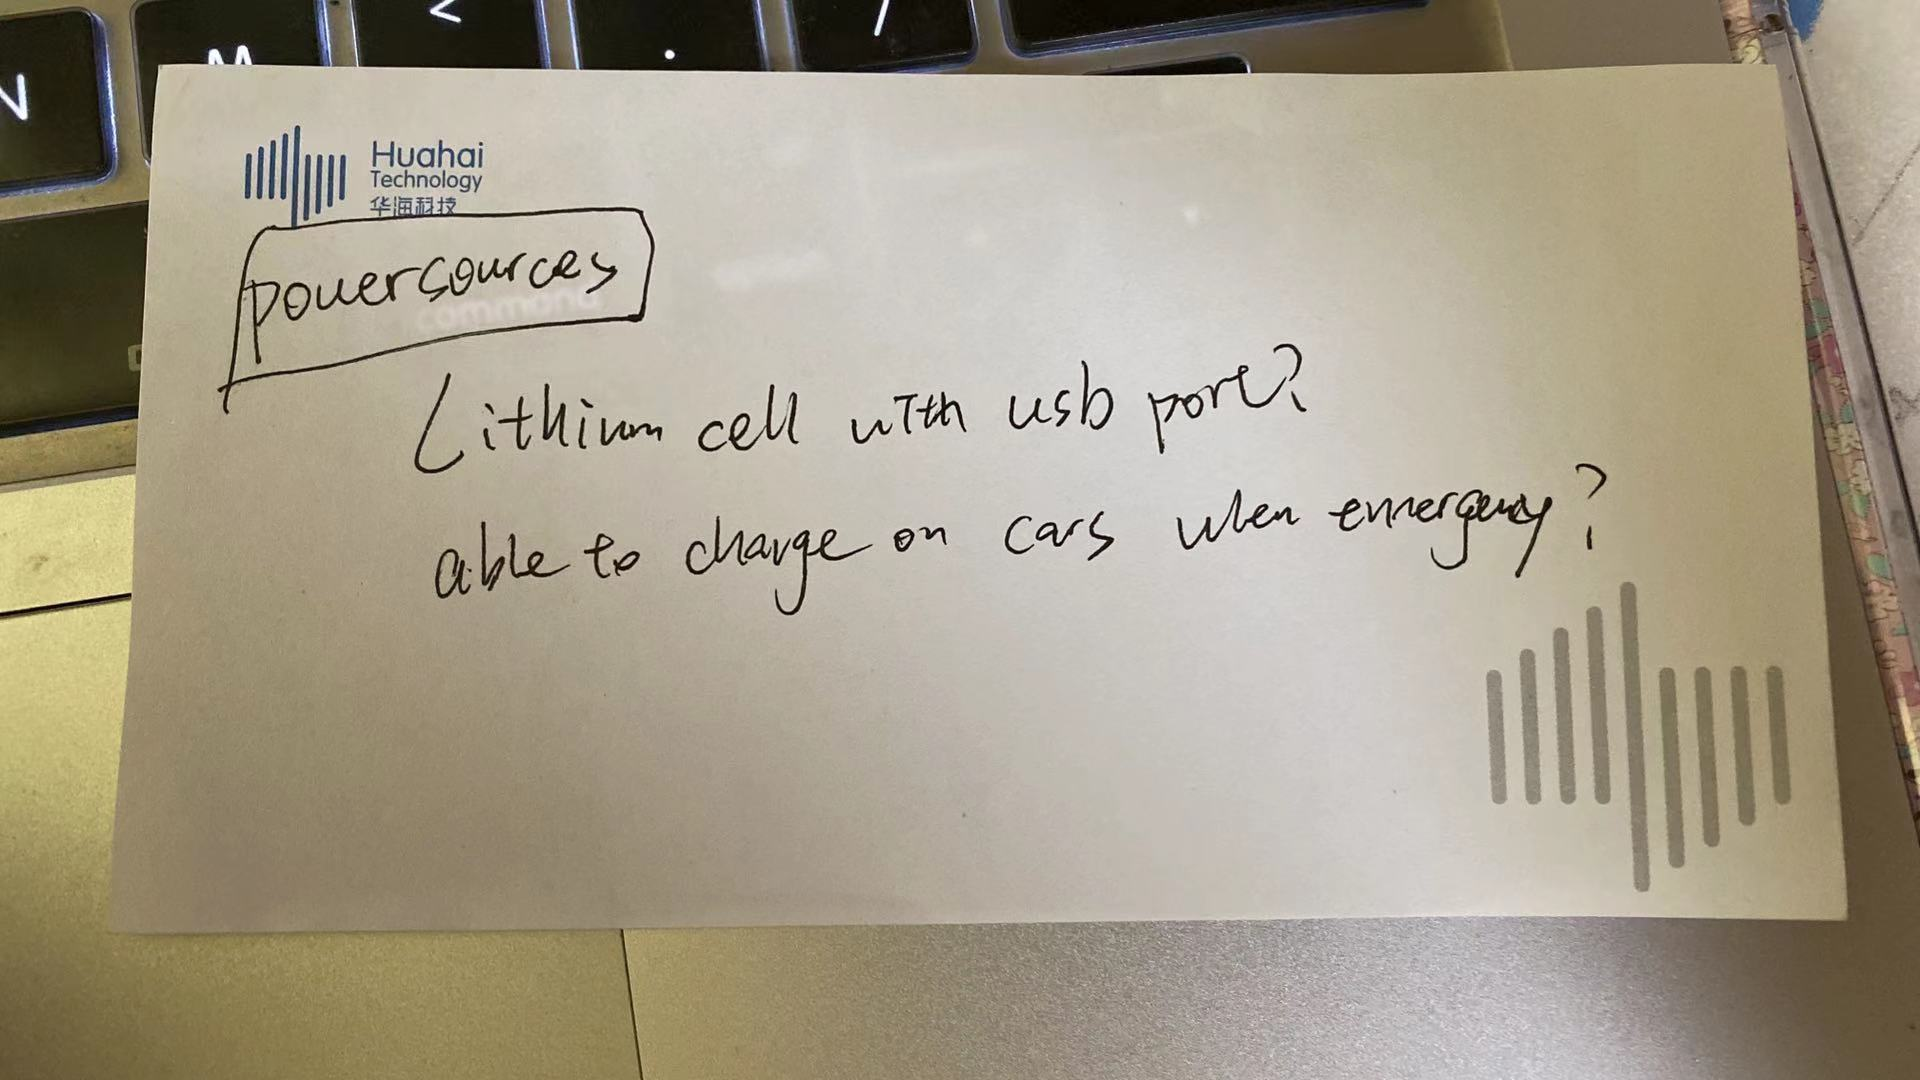 N M < . /
Huahai
Technology
华海科技
powersources
command
Lithium cell with usb port?
able to charge on cars when emergency?